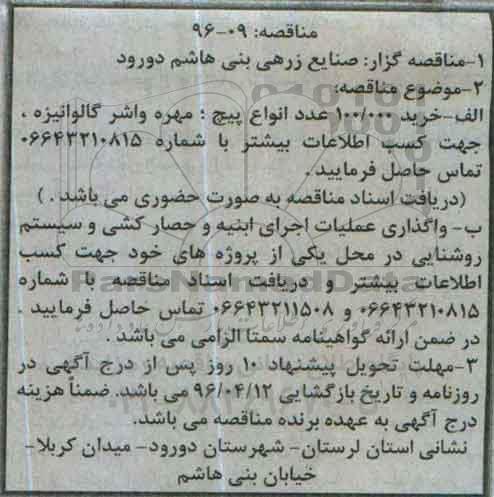 مناقصه: ۰۹-۹۶
۱-مناقصه گزار: صنایع زرهی بنی هاشم دورود
۲-موضوع مناقصه:
الف-خرید ۱۰۰/۰۰۰ عدد انواع پیچ ؛ مهره واشر گالوانیزه ،
جهت کسب اطلاعات بیشتر با شماره ۰۶۶۴۳۲۱۰۸۱۵
تماس حاصل فرمایید .
(دریافت اسناد مناقصه به صورت حضوری می باشد . )
ب- واگذاری عملیات اجرای ابنیه و حصار کشی و سیستم
روشنایی در محل یکی از پروژه های خود جهت کسب
اطلاعات بیشتر و دریافت اسناد مناقصه با شماره
۰۶۶۴۳۲۱۰۸۱۵ و ۰۶۶۴۳۲۱۱۵۰۸ تماس حاصل فرمایید .
در ضمن ارائه گواهینامه سمتا الزامی می باشد .
۳-مهلت تحویل پیشنهاد ۱۰ روز پس از درج آگهی در
روزنامه و تاریخ بازگشایی ۹۶/۰۴/۱۲ می باشد. ضمناً هزینه
درج آگهی به عهده برنده مناقصه می باشد.
نشانی استان لرستان- شهرستان دورود- میدان کربلا-
خیابان بنی هاشم
ParsNamadData